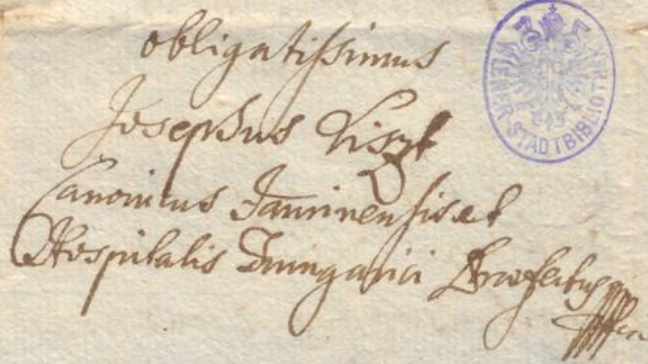 obligatissimus
Josephus Liszt
Canonicus Jaurinensis et
Hospitalis Hungarici Præfectus
WIENER STADTBIBLIOTHEK